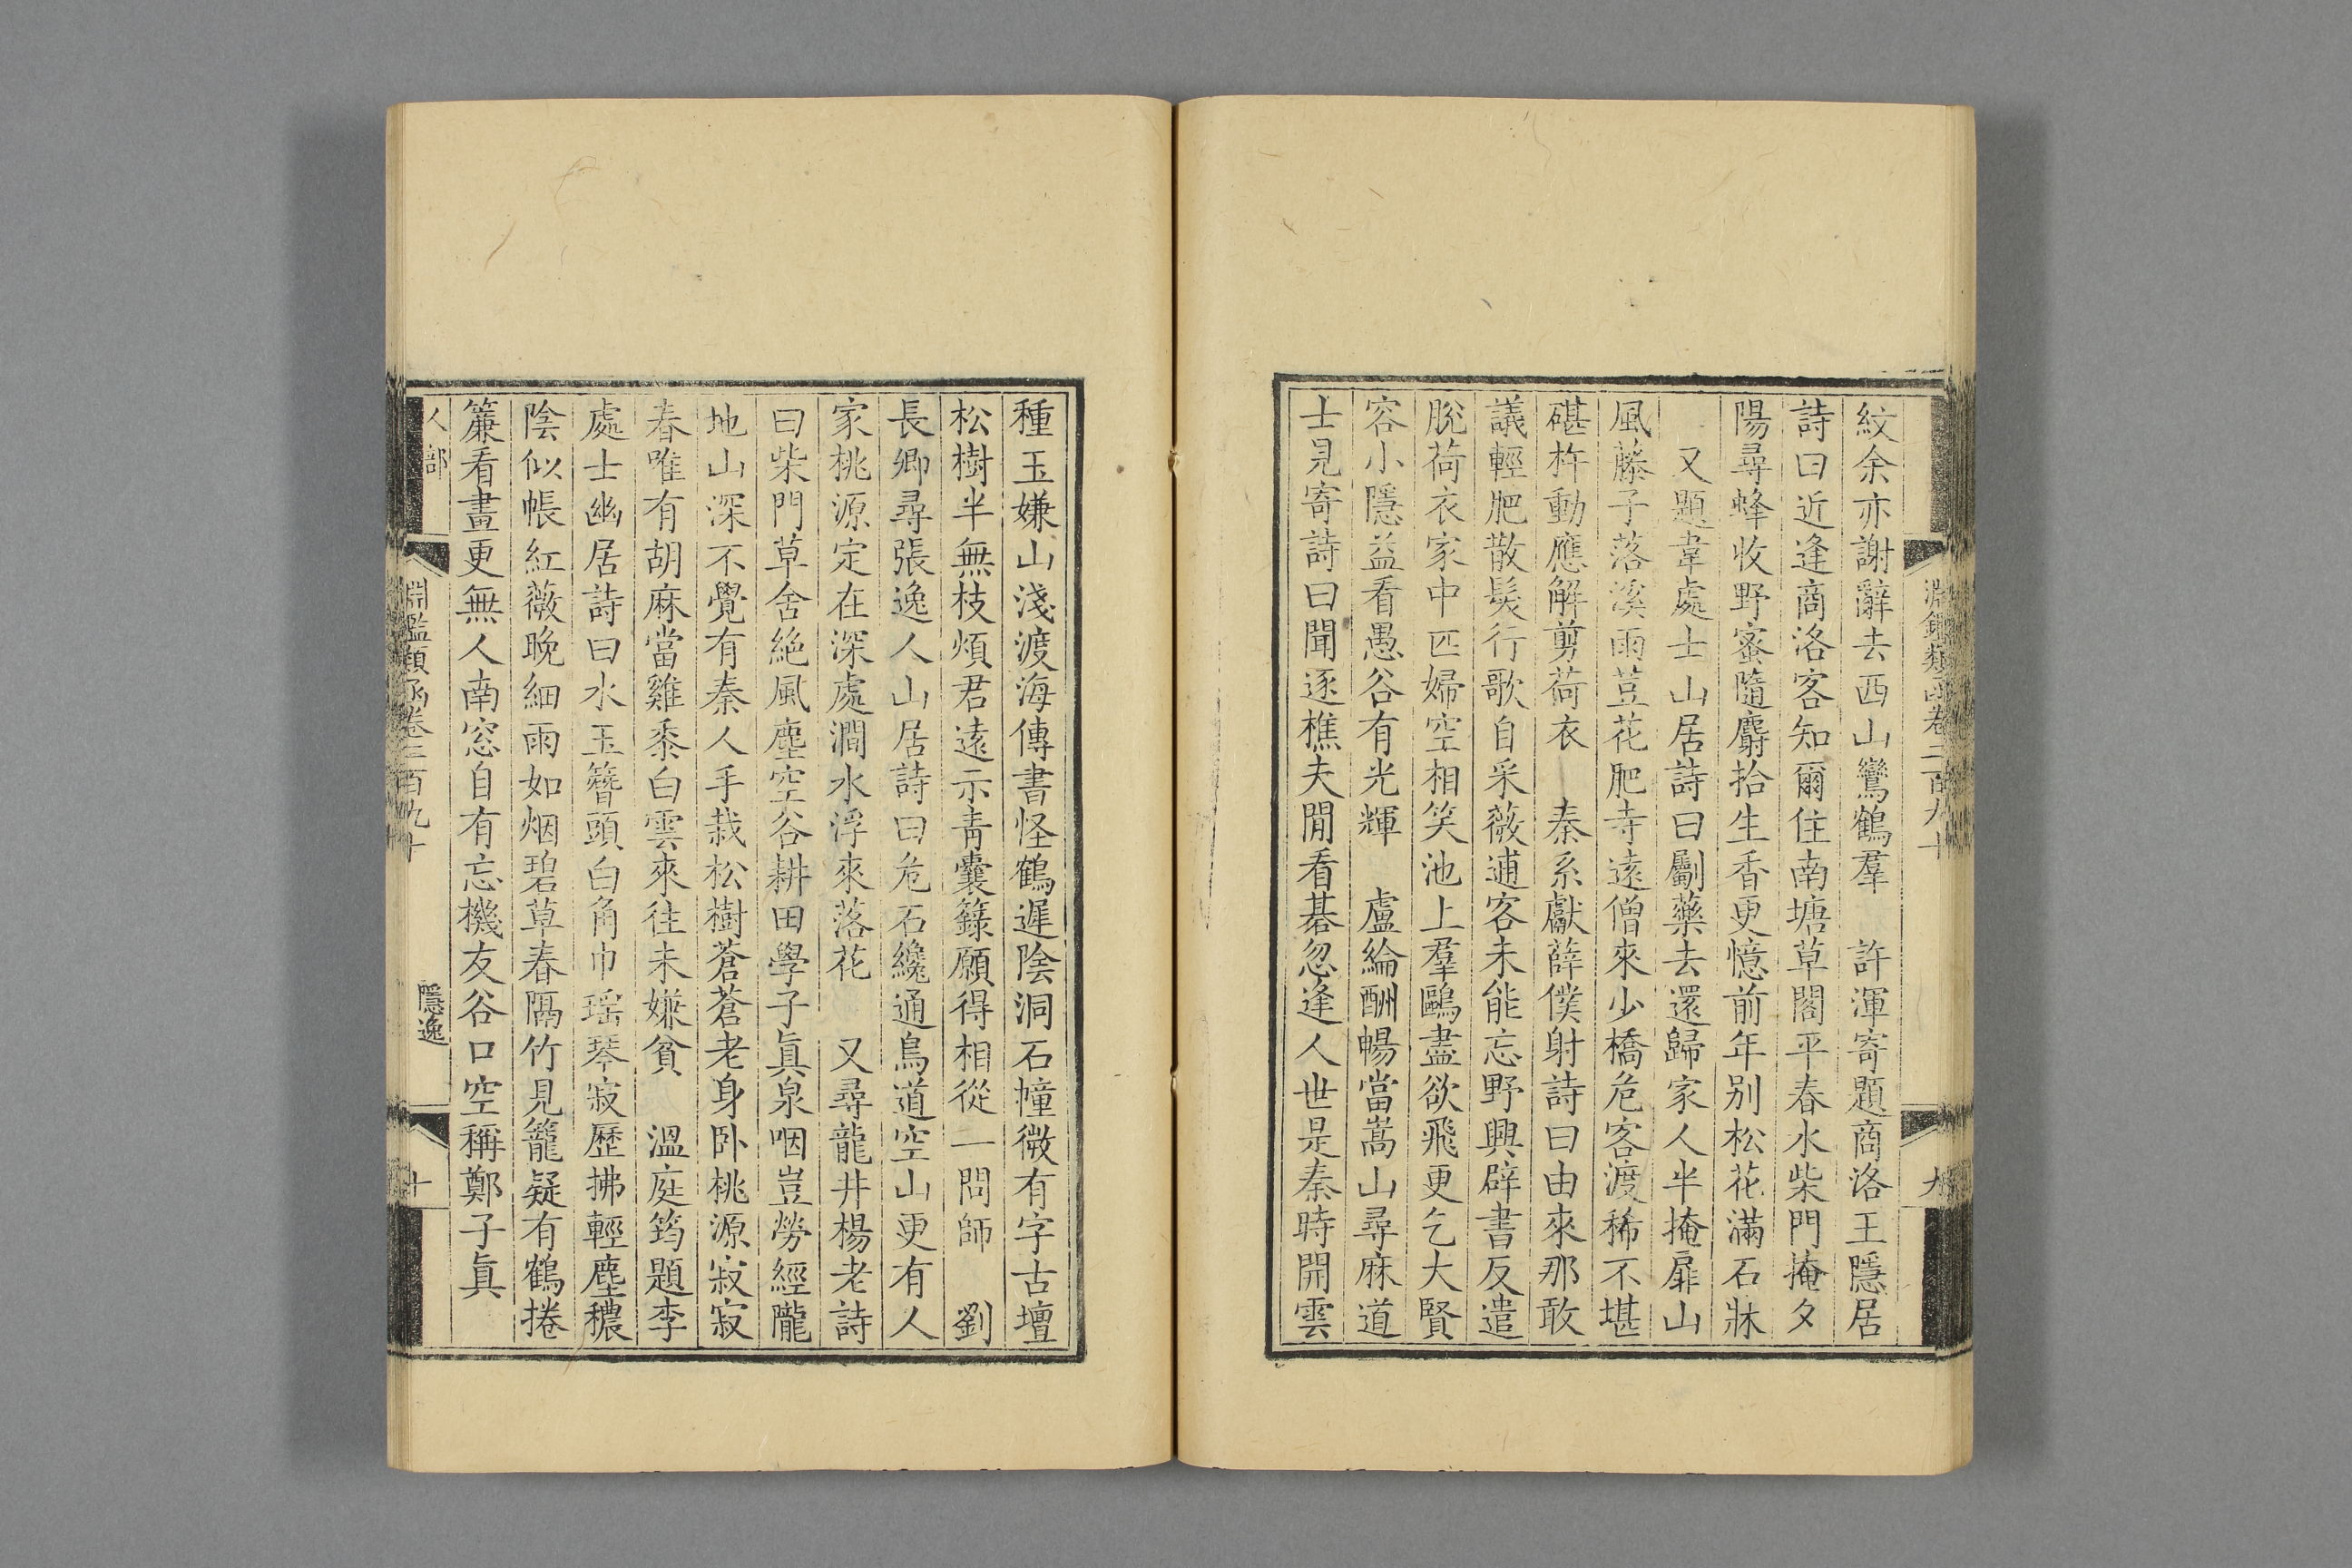 淵鑑類函卷二百九十
九
紋余亦謝辭去西山鸞鶴羣　許渾寄題商洛王隱居
詩曰近逢商洛客知爾住南塘草閣平春水柴門掩夕
陽尋蜂收野蜜隨麝拾生香更憶前年别松花滿石牀
又題韋處士山居詩曰斸藥去還歸家人半掩扉山
風藤子落溪雨荳花肥寺遠僧來少橋危客渡稀不堪
碪杵動應解剪荷衣　秦系獻薛僕射詩曰由來那敢
議輕肥散髮行歌自采薇逋客未能忘野興辟書反遣
脫荷衣家中匹婦空相笑池上羣鷗盡欲飛更乞大賢
容小隱益看愚谷有光輝　盧綸酬暢當嵩山尋麻道
士見寄詩曰聞逐樵夫閒看碁忽逢人世是秦時開雲
種玉嫌山淺渡海傳書怪鶴遲陰洞石幢微有字古壇
松樹半無枝煩君遠示青囊籙願得相從一問師　劉
長卿尋張逸人山居詩曰危石纔通鳥道空山更有人
家桃源定在深處澗水浮來落花　又尋龍井楊老詩
曰柴門草舍絶風塵空谷耕田學子眞泉咽豈勞經隴
地山深不覺有秦人手栽松樹蒼蒼老身臥桃源寂寂
春唯有胡麻當雞黍白雲來往未嫌貧　溫庭筠題李
處士幽居詩曰水玉簪頭白角巾瑶琴寂歷拂輕塵穠
陰似帳紅薇晚細雨如烟碧草春隔竹見籠疑有鶴捲
簾看畫更無人南窓自有忘機友谷口空稱鄭子眞
人部
淵鑑類函卷二百九十
隱逸
十